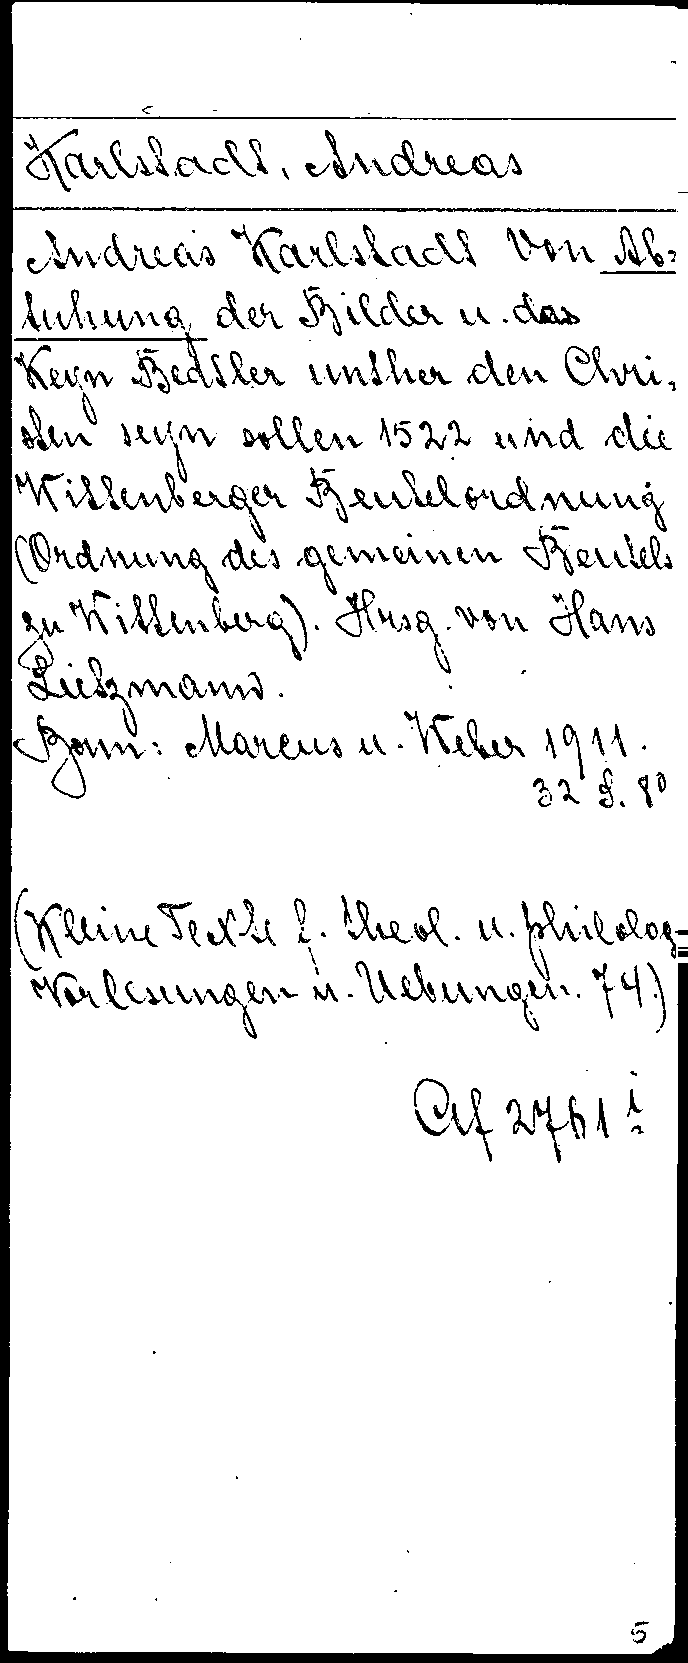 Karlstadt, Andreas
Andreas Karlstadt Von Ab-
tuhung der Bilder u. das
Keyn Bedtler unther den Chri-
sten seyn sollen 1522 und die
Wittenberger Beutelordnung
(Ordnung des gemeinen Beutels
zu Wittenberg). Hrsg. von Hans
Lietzmann.
Bonn: Marcus u. Weber 1911.
32 S. 8°
(Kleine Texte f. theol. u. philolog-
Vorlesungen u. Uebungen. 74.)
Cuf 2761 i
5